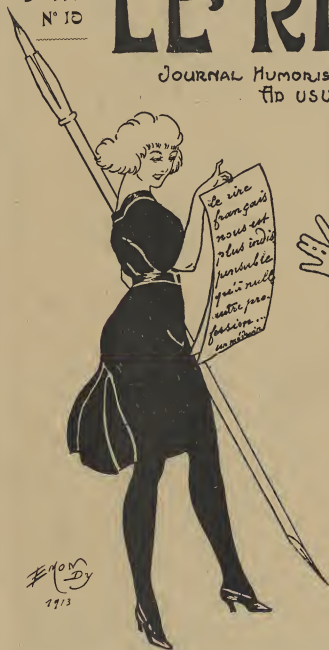 N° 10
LE RI
JOURNAL HUMORIS
AD USU
Le rire
français
nous est
plus indis
pensable
qu'à nulle
autre pro-
fession...
un médecin
EMON
DY
1913